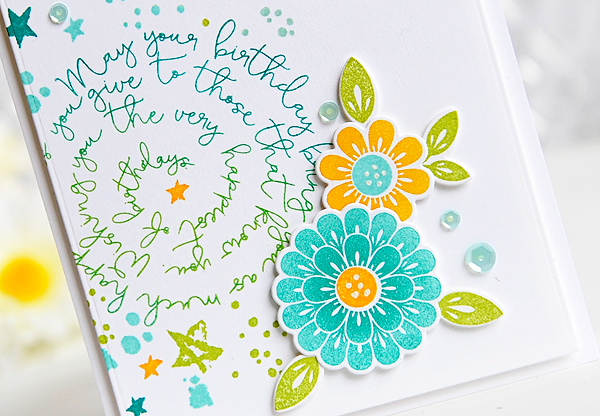 May your birthday bring you as much happiness as
you give to those that know you. Wishing
you the very happiest of
birthdays.